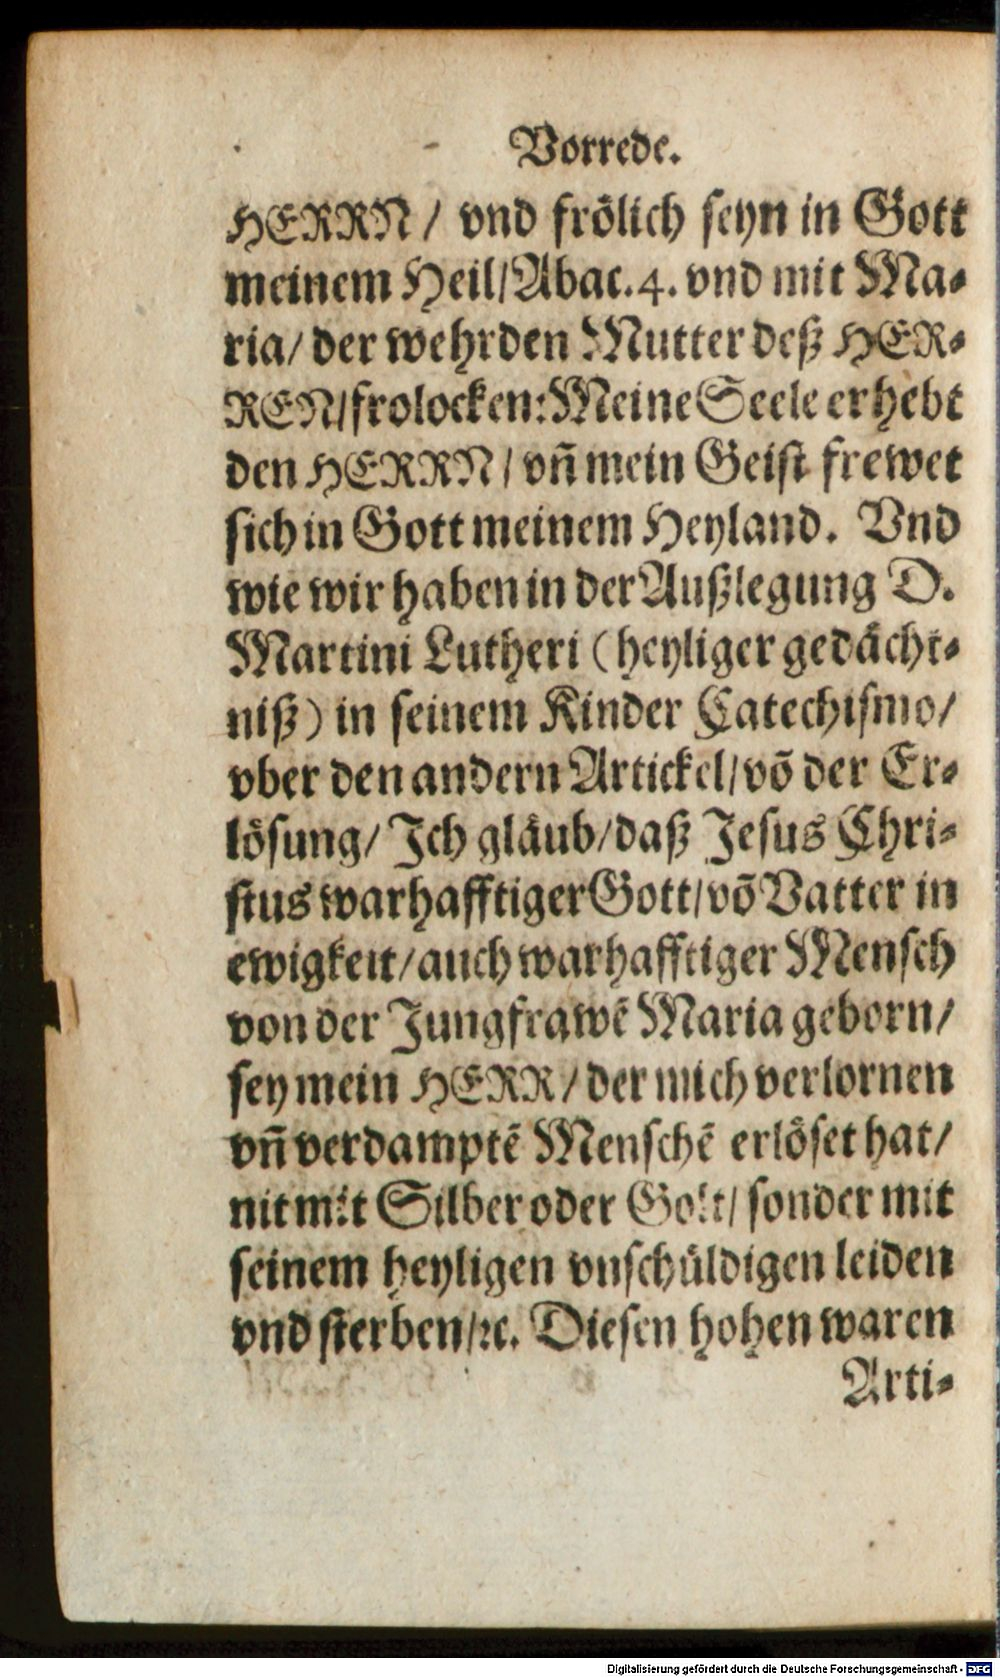 Vorrede.
HERRN / vnd frölich seyn in Gott
meinem Heil/Abac.4. vnd mit Ma-
ria/ der wehrden Mutter deß HER-
REN/frolocken: Meine Seele erhebt
den HERRN / vn̄ mein Geist frewet
sich in Gott meinem Heyland. Vnd
wie wir haben in der Außlegung D.
Martini Lutheri (heyliger gedächt-
niß) in seinem Kinder Catechismo/
vber den andern Artickel/ võ der Er-
lösung/ Ich gläub/daß Jesus Chri-
stus warhafftiger Gott/ võ Vatter in
ewigkeit/auch warhafftiger Mensch
von der Jungfrawẽ Maria geborn/
sey mein HERR / der mich verlornen
vn̄ verdamptẽ Menschẽ erlöset hat/
nit mit Silber oder Golt/ sonder mit
seinem heyligen vnschüldigen leiden
vnd sterben/ꝛc. Diesen hohen waren
Arti-
Digitalisierung gefördert durch die Deutsche Forschungsgemeinschaft - DFG